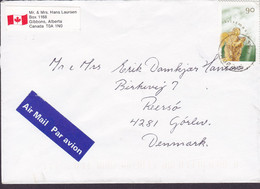 Mr. & Mrs. Hans Laursen
Box 1168
Gibbons, Alberta
Canada T0A 1N0
90
Mr & Mrs Erik Damkjær Hansen
Birkevej 7
Reersø
4281 Görlev
Denmark.
Air Mail Par avion